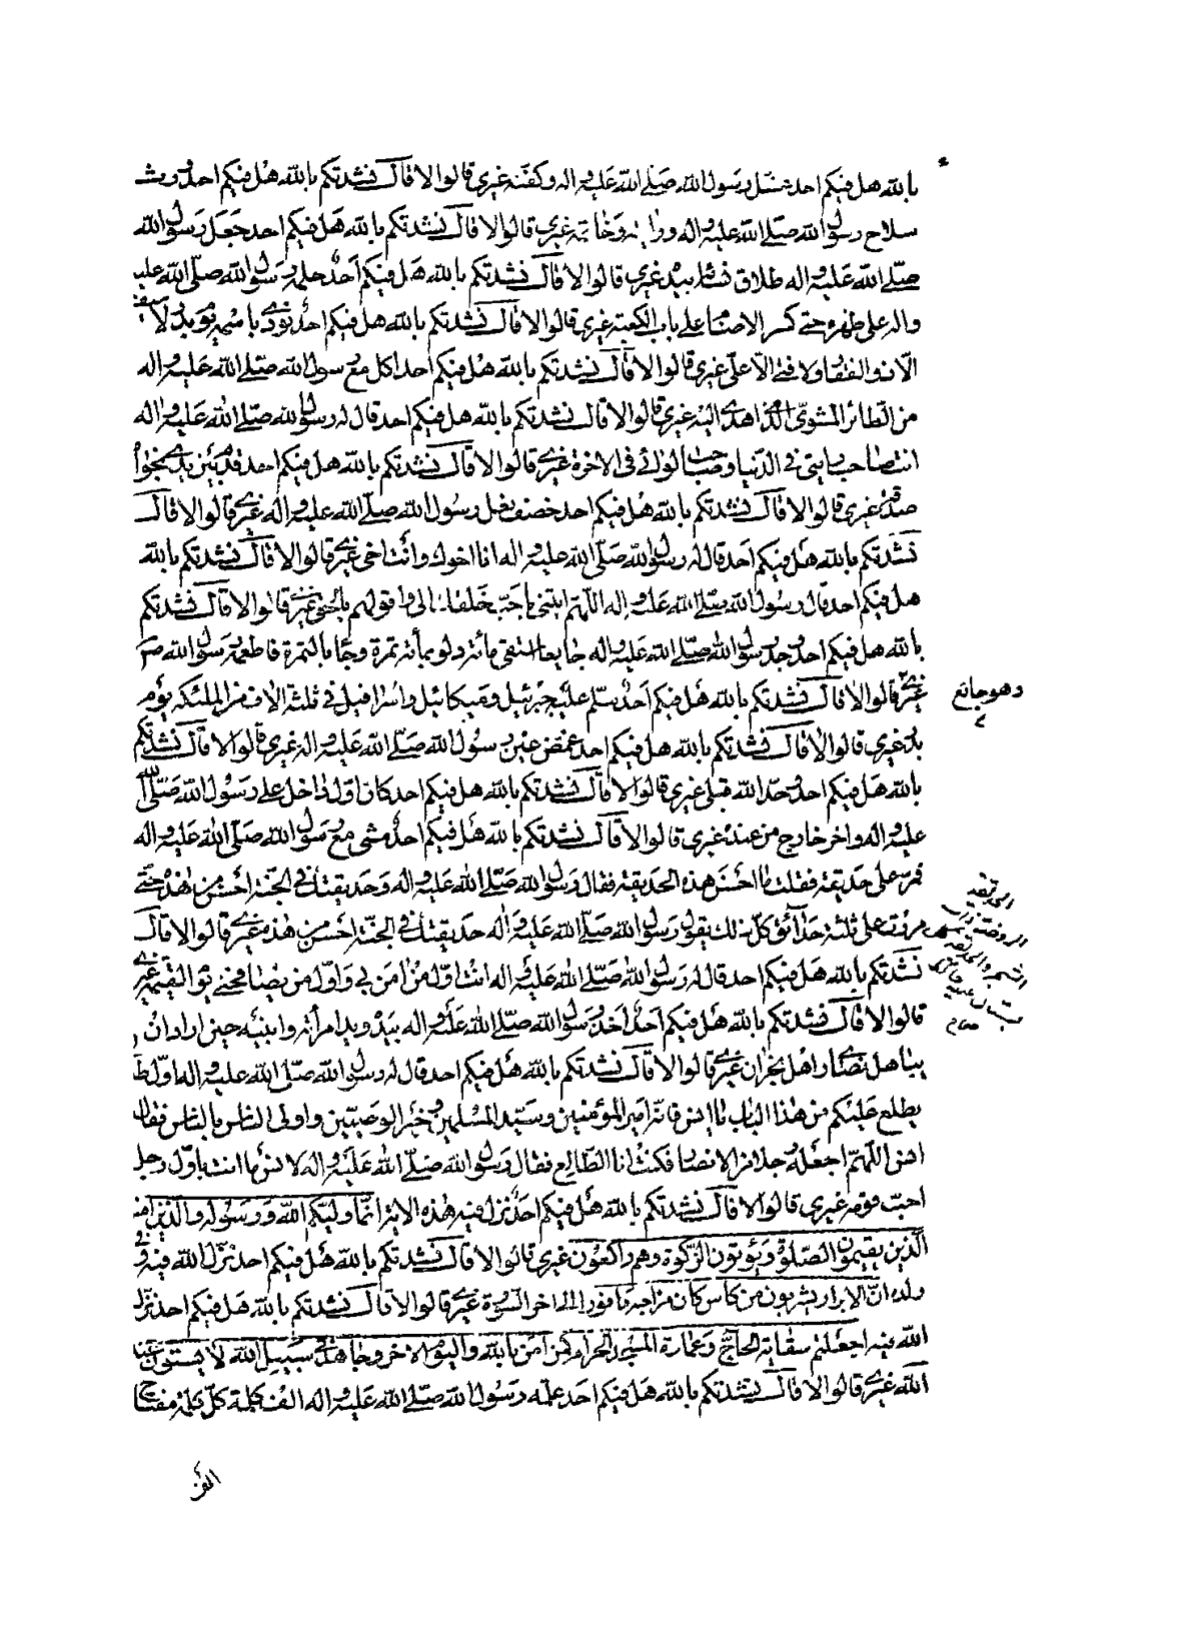 بالله هل فيكم احد غسل رسول الله صلى الله عليه واله وكفنه غيري قالوا لا قال نشدتكم بالله هل فيكم احد ورث
سلاح رسول الله صلى الله عليه واله ورايته وخاتمه غيري قالوا لا قال نشدتكم بالله هل فيكم احد جعل رسول الله
صلى الله عليه واله طلاق نسائه بيده غيري قالوا لا قال نشدتكم بالله هل فيكم احد حمله رسول الله صلى الله عليه
واله على ظهره حتى كسر الاصنام على باب الكعبة غيري قالوا لا قال نشدتكم بالله هل فيكم احد نودي باسمه يوم بدر لا سيف
الا ذو الفقار ولا فتى الا علي غيري قالوا لا قال نشدتكم بالله هل فيكم احد اكل مع رسول الله صلى الله عليه واله
من الطائر المشوي الذي اهدي اليه غيري قالوا لا قال نشدتكم بالله هل فيكم احد قال له رسول الله صلى الله عليه واله
انت صاحب رايتي في الدنيا وصاحب لوائي في الاخرة غيري قالوا لا قال نشدتكم بالله هل فيكم احد قدم بين يدي نجواه
صدقة غيري قالوا لا قال نشدتكم بالله هل فيكم احد خصف نعل رسول الله صلى الله عليه واله غيري قالوا لا قال
نشدتكم بالله هل فيكم احد قال له رسول الله صلى الله عليه واله انا اخوك وانت اخي غيري قالوا لا قال نشدتكم بالله
هل فيكم احد قال رسول الله صلى الله عليه واله اللهم ايتني باحب خلقك الي واقولهم بالحق غيري قالوا لا قال نشدتكم
بالله هل فيكم احد وجد رسول الله صلى الله عليه واله جايعا استقى مائة دلو بمأته تمرة وجاء بالتمرة فاطعمه رسول الله ص
وهو جائع
غيري قالوا لا قال نشدتكم بالله هل فيكم احد سلم عليه جبرئيل وميكائيل واسرافيل في ثلثة الاف من الملئكة يوم
بدر غيري قالوا لا قال نشدتكم بالله هل فيكم احد غمض عين رسول الله صلى الله عليه واله غيري قالوا لا قال نشدتكم
بالله هل فيكم احد وحد الله قبلي غيري قالوا لا قال نشدتكم بالله هل فيكم احد كان اول داخل على رسول الله صلى الله
عليه واله واخر خارج من عنده غيري قالوا لا قال نشدتكم بالله هل فيكم احد مشى مع رسول الله صلى الله عليه واله
فمر على حديقة فقلت ما احسن هذه الحديقة فقال رسول الله صلى الله عليه واله وحديقتك في الجنة احسن من هذه حتى
مررت على ثلثة حدائق كل ذلك يقول رسول الله صلى الله عليه واله حديقتك في الجنة احسن من هذه غيري قالوا لا قال
نشدتكم بالله هل فيكم احد قال له رسول الله صلى الله عليه واله انت اول من امن بي واول من يصافحني يوم القيمة غيري
قالوا لا قال نشدتكم بالله هل فيكم احد اخذ رسول الله صلى الله عليه واله بيده ويد امرأته وابنيه حين اراد ان
يباهل نصارى اهل نجران غيري قالوا لا قال نشدتكم بالله هل فيكم احد قال له رسول الله صلى الله عليه واله اول طا
يطلع عليكم من هذا الباب يا انس فانه امير المؤمنين وسيد المسلمين وخير الوصيين واولى الناس بالناس فقال
انس اللهم اجعله رجلا من الانصار فكنت انا الطالع فقال رسول الله صلى الله عليه واله لانس ما انت باول رجل
احب قومه غيري قالوا لا قال نشدتكم بالله هل فيكم احد نزل فيه هذه الاية انما وليكم الله ورسوله والذين امنوا
الذين يقيمون الصلوة ويؤتون الزكوة وهم راكعون غيري قالوا لا قال نشدتكم بالله هل فيكم احد نزل الله فيه وفي
ولده ان الابرار يشربون من كاس كان مزاجها كافورا الى اخر السورة غيري قالوا لا قال نشدتكم بالله هل فيكم احد نزل
الله فيه اجعلتم سقاية الحاج وعمارة المسجد الحرام كمن امن بالله واليوم الاخر وجاهد في سبيل الله لا يستون عند
الله غيري قالوا لا قال نشدتكم بالله هل فيكم احد علمه رسول الله صلى الله عليه واله الف كلمة كل كلمة مفتاح
الف